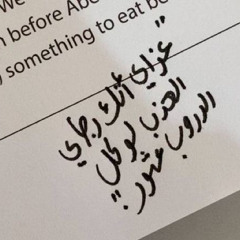 We
n before Abe
g something to eat be
"عزاي أنّك دربي
العذب لو كل
الدروب عثور."